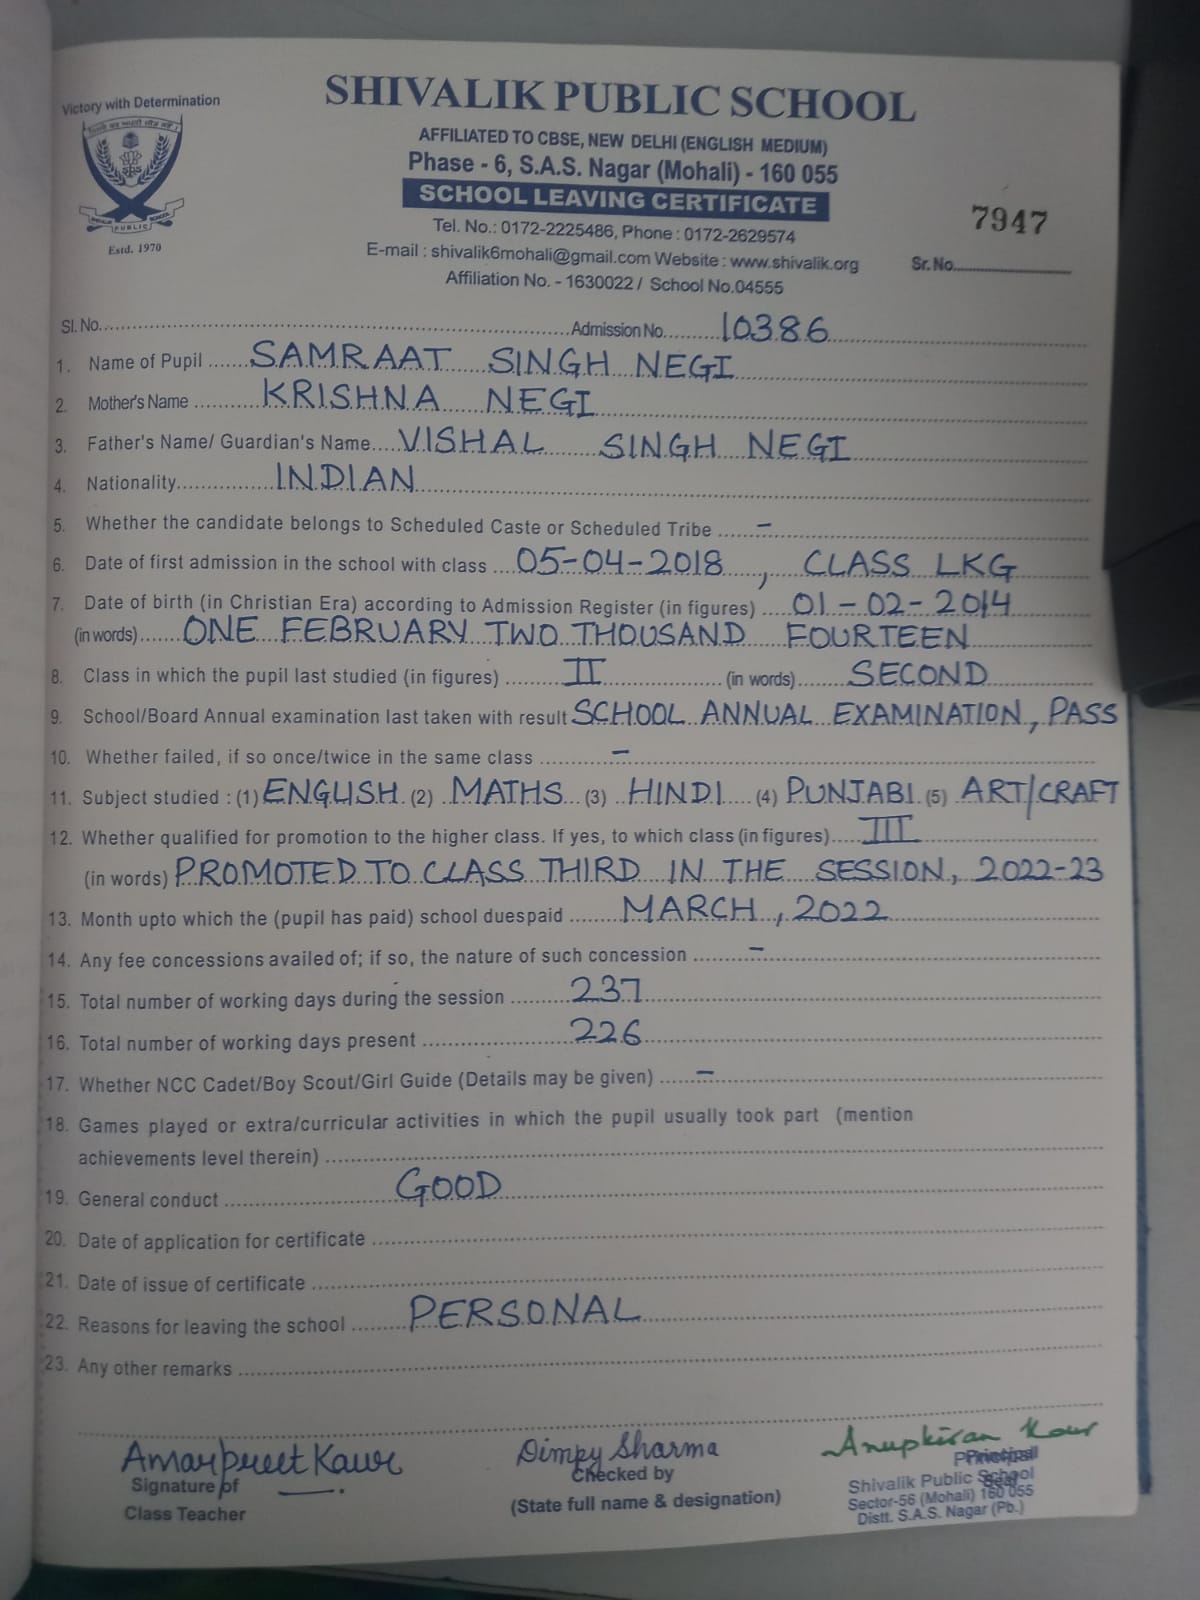 Victory with Determination
SHIVALIK PUBLIC SCHOOL
AFFILIATED TO CBSE, NEW DELHI (ENGLISH MEDIUM)
Phase - 6, S.A.S. Nagar (Mohali) - 160 055
SCHOOL LEAVING CERTIFICATE
7947
Tel. No.: 0172-2225486, Phone : 0172-2629574
E-mail : shivalik6mohali@gmail.com Website : www.shivalik.org
Sr. No.
Affiliation No. - 1630022 / School No.04555
SPS
SHIVALIK PUBLIC SCHOOL
Estd. 1970
Sl. No. Admission No. 10386
1. Name of Pupil SAMRAAT SINGH NEGI
2. Mother's Name KRISHNA NEGI
3. Father's Name/ Guardian's Name VISHAL SINGH NEGI
4. Nationality INDIAN
5. Whether the candidate belongs to Scheduled Caste or Scheduled Tribe -
6. Date of first admission in the school with class 05-04-2018, CLASS LKG
7. Date of birth (in Christian Era) according to Admission Register (in figures) 01-02-2014
(in words) ONE FEBRUARY TWO THOUSAND FOURTEEN
8. Class in which the pupil last studied (in figures) II (in words) SECOND
9. School/Board Annual examination last taken with result SCHOOL ANNUAL EXAMINATION, PASS
10. Whether failed, if so once/twice in the same class -
11. Subject studied : (1) ENGLISH (2) MATHS (3) HINDI (4) PUNJABI (5) ART/CRAFT
12. Whether qualified for promotion to the higher class. If yes, to which class (in figures) III
(in words) PROMOTED TO CLASS THIRD IN THE SESSION, 2022-23
13. Month upto which the (pupil has paid) school duespaid MARCH, 2022
14. Any fee concessions availed of; if so, the nature of such concession -
15. Total number of working days during the session 237
16. Total number of working days present 226
17. Whether NCC Cadet/Boy Scout/Girl Guide (Details may be given) -
18. Games played or extra/curricular activities in which the pupil usually took part (mention
achievements level therein)
19. General conduct GOOD
20. Date of application for certificate
21. Date of issue of certificate
22. Reasons for leaving the school PERSONAL
23. Any other remarks
Amarpreet Kaur
Signature of
Class Teacher
Dimpy Sharma
Checked by
(State full name & designation)
Anupkiran Kaur
Principal
Seal
Principal
Shivalik Public School
Sector-56 (Mohali) 160 055
Distt. S.A.S. Nagar (Pb.)